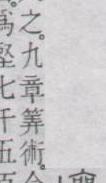 之。九章筭術。
爲堅七千五